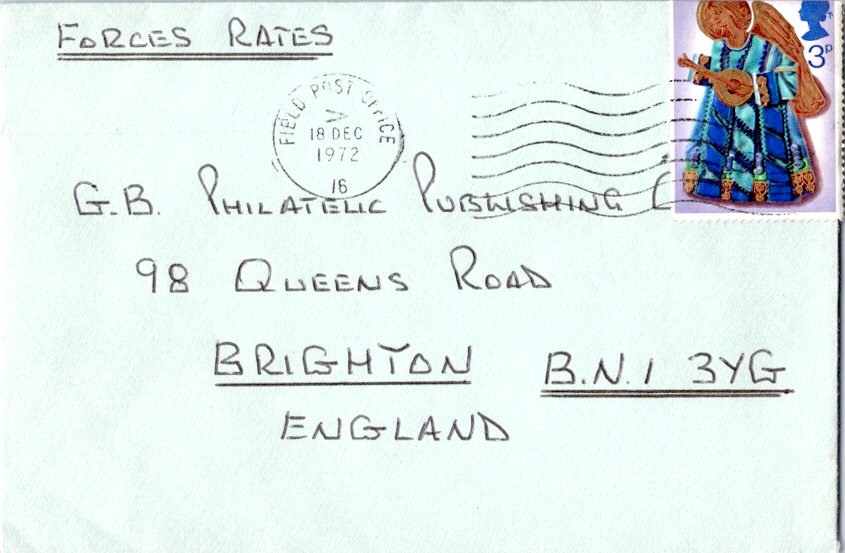 FORCES RATES
3P
FIELD POST OFFICE
18 DEC
1972
16
G.B. PHILATELIC PUBLISHING
98 QUEENS ROAD
BRIGHTON B.N.1 3YG
ENGLAND